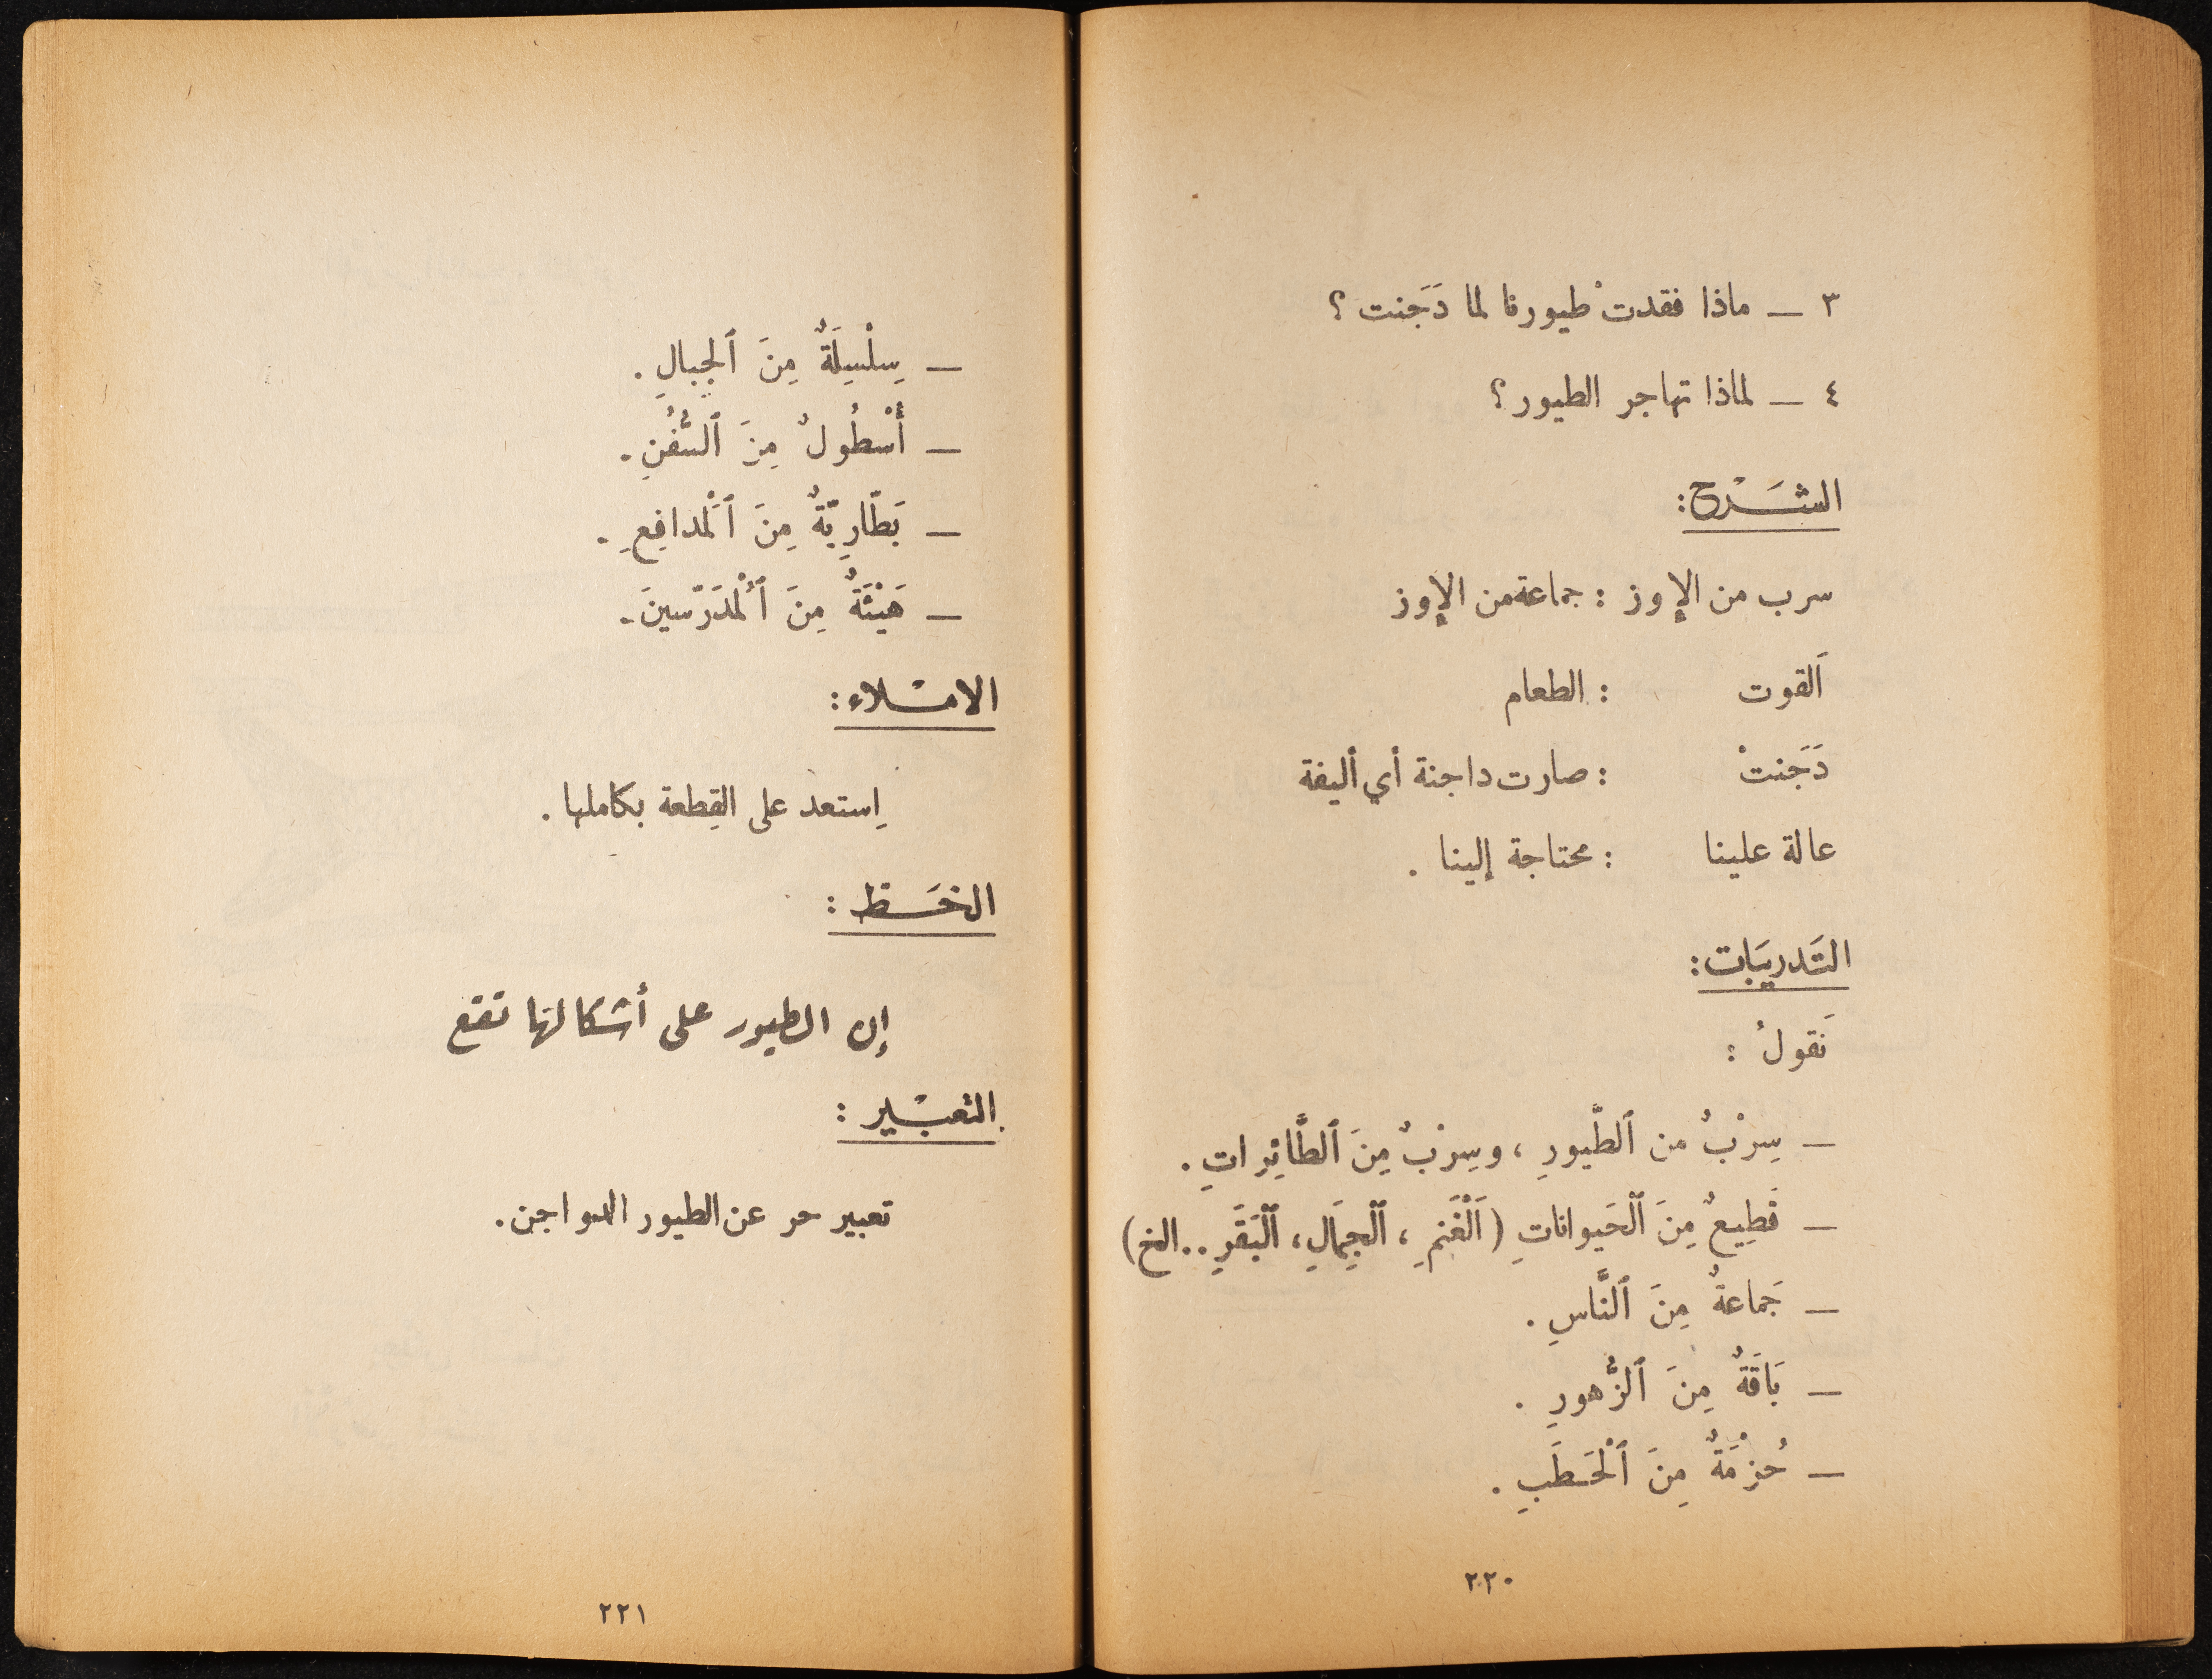 ٣ ــ ماذا فقدتْ طيورنا لما دَجَنت ؟
٤ ــ لماذا تهاجر الطيور ؟
الشَـرْح :
سرب من الإوز : جماعة من الإوز
اَلقوت : الطعام
دَجَنتْ : صارت داجنة أي أليفة
عالة علينا : محتاجة إلينا .
التَدريبَات :
نَقولُ :
ــ سِرْبٌ من ٱلطُّيورِ ، وسِرْبٌ مِنَ ٱلطَّائِراتِ .
ــ قَطِيعٌ مِنَ ٱلْحَيواناتِ ( اَلْغَنَمِ ، ٱلْجِمَالِ ، ٱلْبَقَرِ .. الخ )
ــ جَماعةٌ مِنَ ٱلنَّاسِ .
ــ بَاقَةٌ مِنَ ٱلزُّهورِ .
ــ حُزْمَةٌ مِنَ ٱلْحَطَبِ .
٢٢٠
ــ سِلْسِلَةٌ مِنَ ٱلجِبالِ .
ــ أُسْطُولٌ مِنَ ٱلسُّفُنِ .
ــ بَطّارِيّةٌ مِنَ ٱلْمَدافِعِ .
ــ هَيْئَةٌ مِنَ ٱلْمُدَرّسينَ .
الامـْلاء :
اِستعد على القِطعة بكاملها .
الخَـط :
إن الطيور على أشكالها تقع
التعبـْير :
تعبير حر عن الطيور الدواجن .
٢٢١